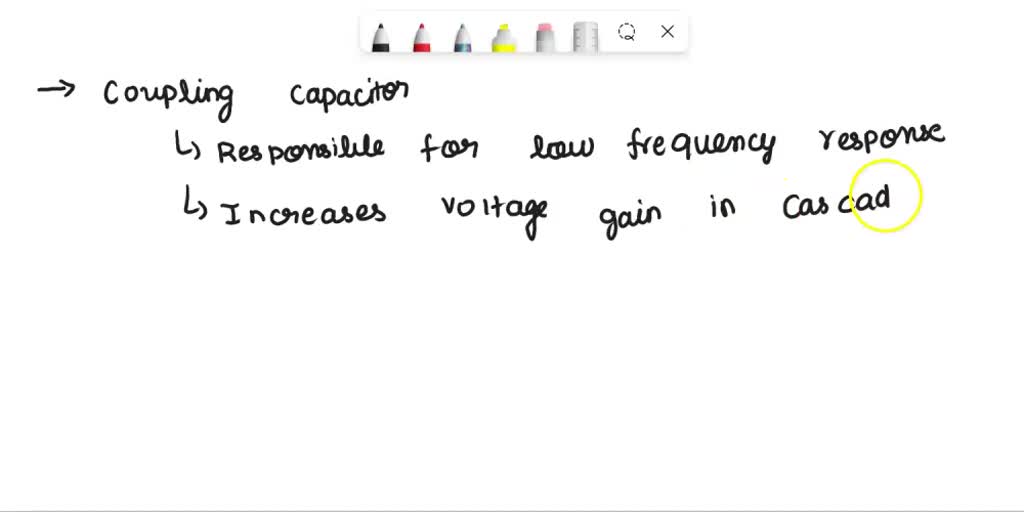 → Coupling capacitor
↳ Responsible for low frequency response
↳ Increases voltage gain in Cascad